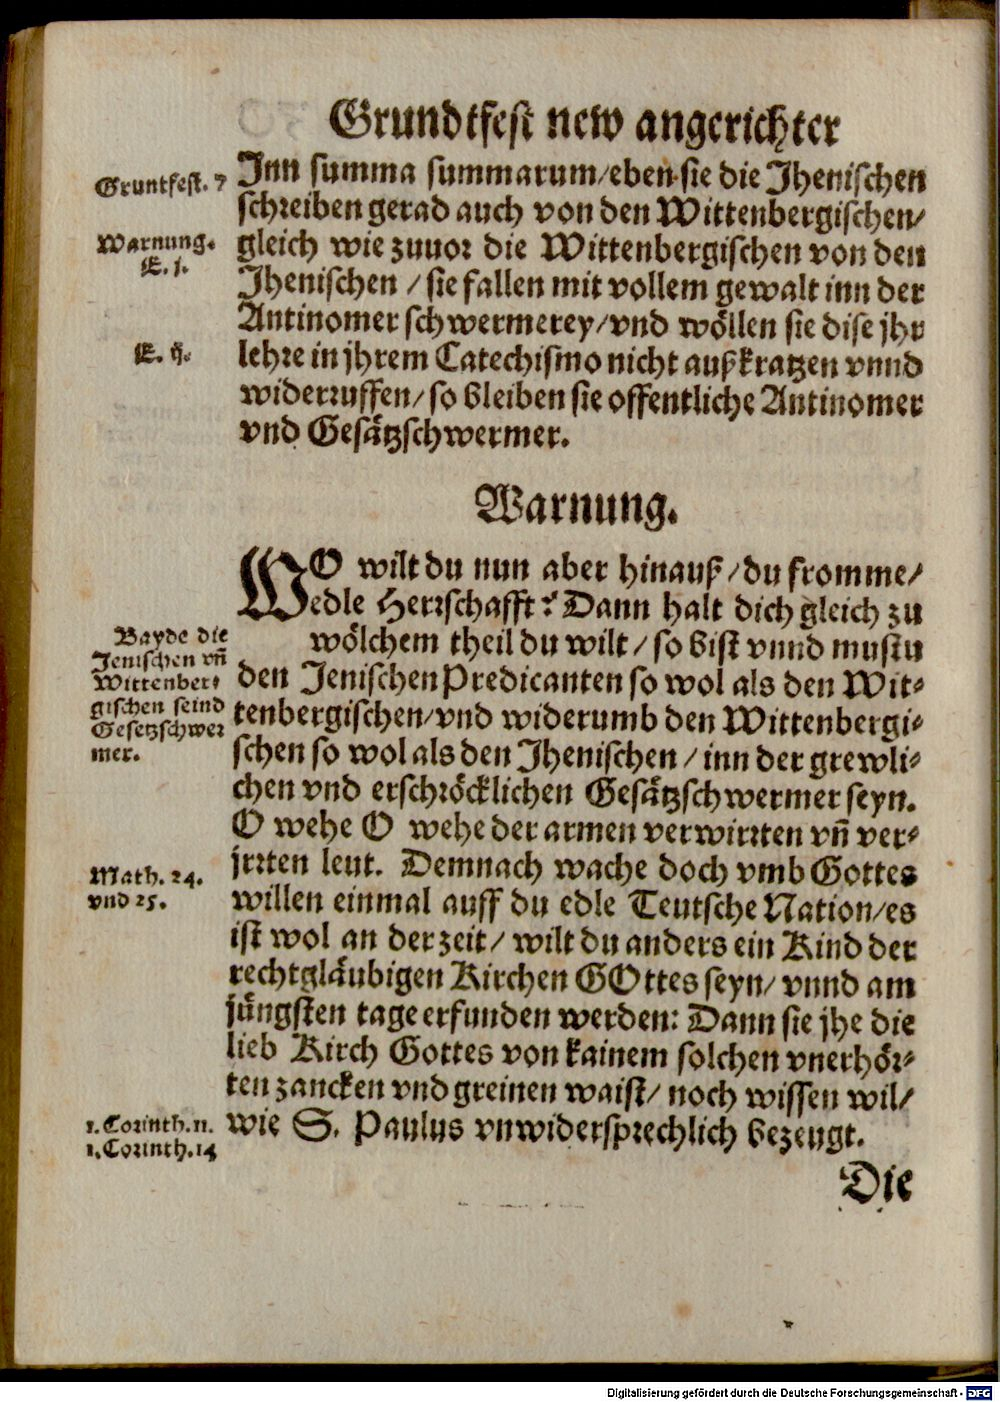 Grundtfest new angerichter
Gruntfest. 7
Inn summa summarum/eben sie die Jhenischen
schreiben gerad auch von den Wittenbergischen/
Warnung.
E. j.
gleich wie zuuor die Wittenbergischen von den
Jhenischen / sie fallen mit vollem gewalt inn der
Antinomer schwermerey/vnd wöllen sie dise jhr
E. ij.
lehre in jhrem Catechismo nicht außkratzen vnnd
widerruffen/ so bleiben sie offentliche Antinomer
vnd Gesätzschwermer.
Warnung.
WO wilt du nun aber hinauß/du fromme/
edle Herrschafft? Dann halt dich gleich zu
wölchem theil du wilt / so bist vnnd mustu
Bayde die
Jenischen vñ
Wittenber-
gischen seind
Gesetzschwer
mer.
den Jenischen Predicanten so wol als den Wit-
tenbergischen/vnd widerumb den Wittenbergi-
schen so wol als den Jhenischen / inn der grewli-
chen vnd erschröcklichen Gesätzschwermer seyn.
O wehe O wehe der armen verwirrten vñ ver-
jrrten leut. Demnach wache doch vmb Gottes
Math. 24.
vnd 25.
willen einmal auff du edle Teutsche Nation/es
ist wol an der zeit/ wilt du anders ein Kind der
rechtgläubigen Kirchen GOttes seyn/ vnnd am
jüngsten tage erfunden werden: Dann sie jhe die
lieb Kirch Gottes von kainem solchen vnerhör-
ten zancken vnd greinen waist/ noch wissen wil/
1. Corinth. 11.
1. Corinth. 14
wie S. Paulus vnwidersprechlich bezeugt.
Die
Digitalisierung gefördert durch die Deutsche Forschungsgemeinschaft - DFG